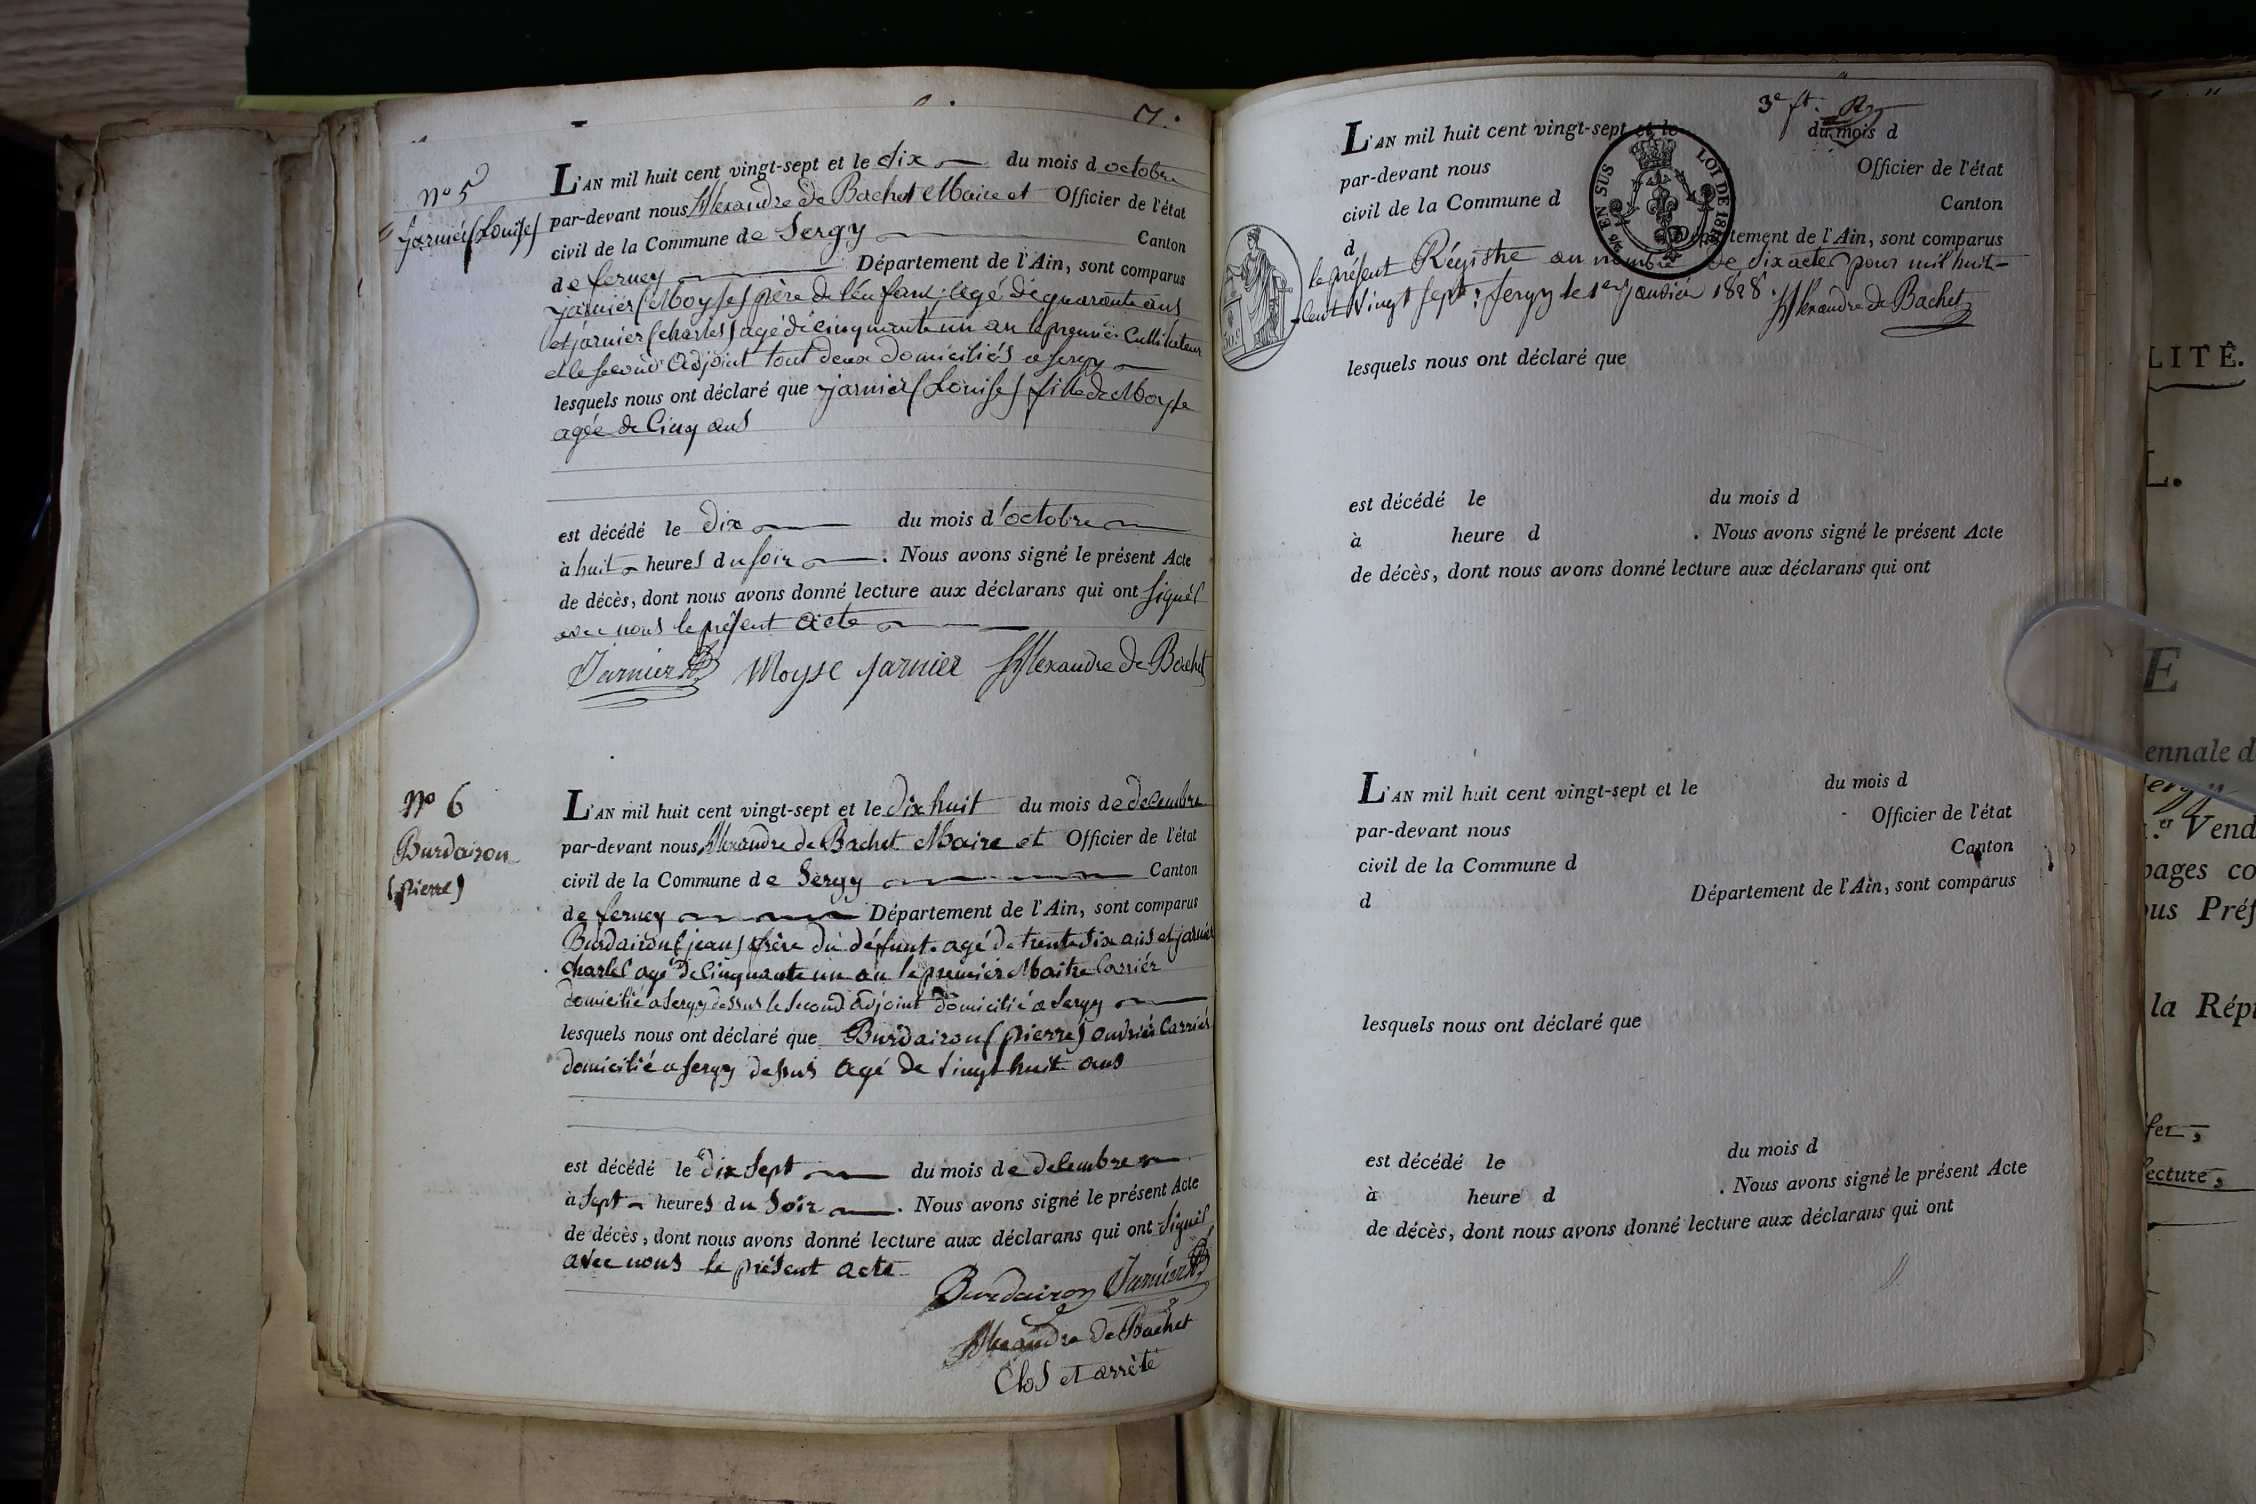 7.
N° 5
Jarnier (Louise)
L'AN mil huit cent vingt-sept et le dix du mois d octobre
par-devant nous Alexandre de Bachet Maire et Officier de l'état
civil de la Commune de Sergy Canton
de ferney Département de l'Ain, sont comparus
jarnier (Moyse) père de l'enfant agé de quarante ans
et jarnier (charles) agé de cinquante un an le premier Cultivateur
et le second adjoint tout deux domiciliés a sergy
lesquels nous ont déclaré que jarnier (Louise) fille de Moyse
agée de Cinq ans
est décédé le dix du mois d'octobre
à huit heures du soir . Nous avons signé le présent Acte
de décès, dont nous avons donné lecture aux déclarans qui ont signés
avec nous le présent acte
Jarnier Moyse jarnier Alexandre de Bachet
N° 6
Burdairon
(pierre)
L'AN mil huit cent vingt-sept et le dix huit du mois de decembre
par-devant nous Alexandre de Bachet Maire et Officier de l'état
civil de la Commune de Sergy Canton
de ferney Département de l'Ain, sont comparus
Burdairon (jean) frère du défunt agé de trente six ans et jarnier
charles agé de cinquante un an le premier Maitre Carriér
domicilié a Sergy dessus le second adjoint domicilié a Sergy
lesquels nous ont déclaré que Burdairon (pierre) ouvriér Carriér
domicilié a sergy dessus agé de vingt huit ans
est décédé le dix sept du mois de decembre
à sept heures du soir . Nous avons signé le présent Acte
de décès, dont nous avons donné lecture aux déclarans qui ont signés
avec nous le présent acte
Burdairon Jarnier
Alexandre de Bachet
Clos et arrêté
3e ft.
L'AN mil huit cent vingt-sept et le du mois d
par-devant nous Officier de l'état
civil de la Commune d Canton
d Département de l'Ain, sont comparus
EN SUS LOI DE
le présent Régistre au nombre de six actes pour mil huit-
cent vingt sept : Sergy le 1er janvier 1828. Alexandre de Bachet
lesquels nous ont déclaré que
est décédé le du mois d
à heure d . Nous avons signé le présent Acte
de décès, dont nous avons donné lecture aux déclarans qui ont
L'AN mil huit cent vingt-sept et le du mois d
par-devant nous Officier de l'état
civil de la Commune d Canton
d Département de l'Ain, sont comparus
lesquels nous ont déclaré que
est décédé le du mois d
à heure d . Nous avons signé le présent Acte
de décès, dont nous avons donné lecture aux déclarans qui ont
LITÉ.
L.
E
ennale d
ergy
er Vend
pages co
ous Préf
la Répu
fer,
lecture,